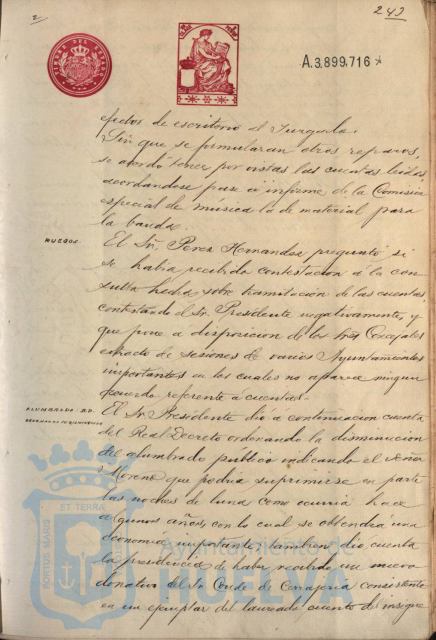 2
243
TIMBRE DEL ESTADO
A.3.899,716
efectos de escritorio al Juzgado.
Sin que se formularan otros reparos,
se acordó tener por vistas las cuentas leidas,
acordandose pase á informe de la Comision
especial de música la de material para
la banda.
RUEGOS.
El Sr. Perez Hernandez preguntó si
se habia recibido contestacion á la con-
sulta hecha sobre tramitación de las cuentas
contestando el Sr. Presidente negativamente, y
que pone a disposicion de los Sres Concejales
extracto de sesiones de varios Ayuntamientos
importantes en los cuales no aparece ningun
acuerdo referente á cuentas.
ALUMBRADO
El Sr. Presidente dió a continuacion cuenta
del Real Decreto ordenando la disminucion
del alumbrado publico indicando el señor
Moreno que podria suprimirse en parte
las noches de luna como ocurria hace
algunos años, con lo cual se obtendria una
economia importante, tambien dio cuenta
la presidencia de haber recibido un nuevo
donativo del Sr. Conde de consistente
en un ejemplar del laureado cuento del insigne
PORTUS MARIS ET TERRAE
Ayuntamiento de
HUELVA